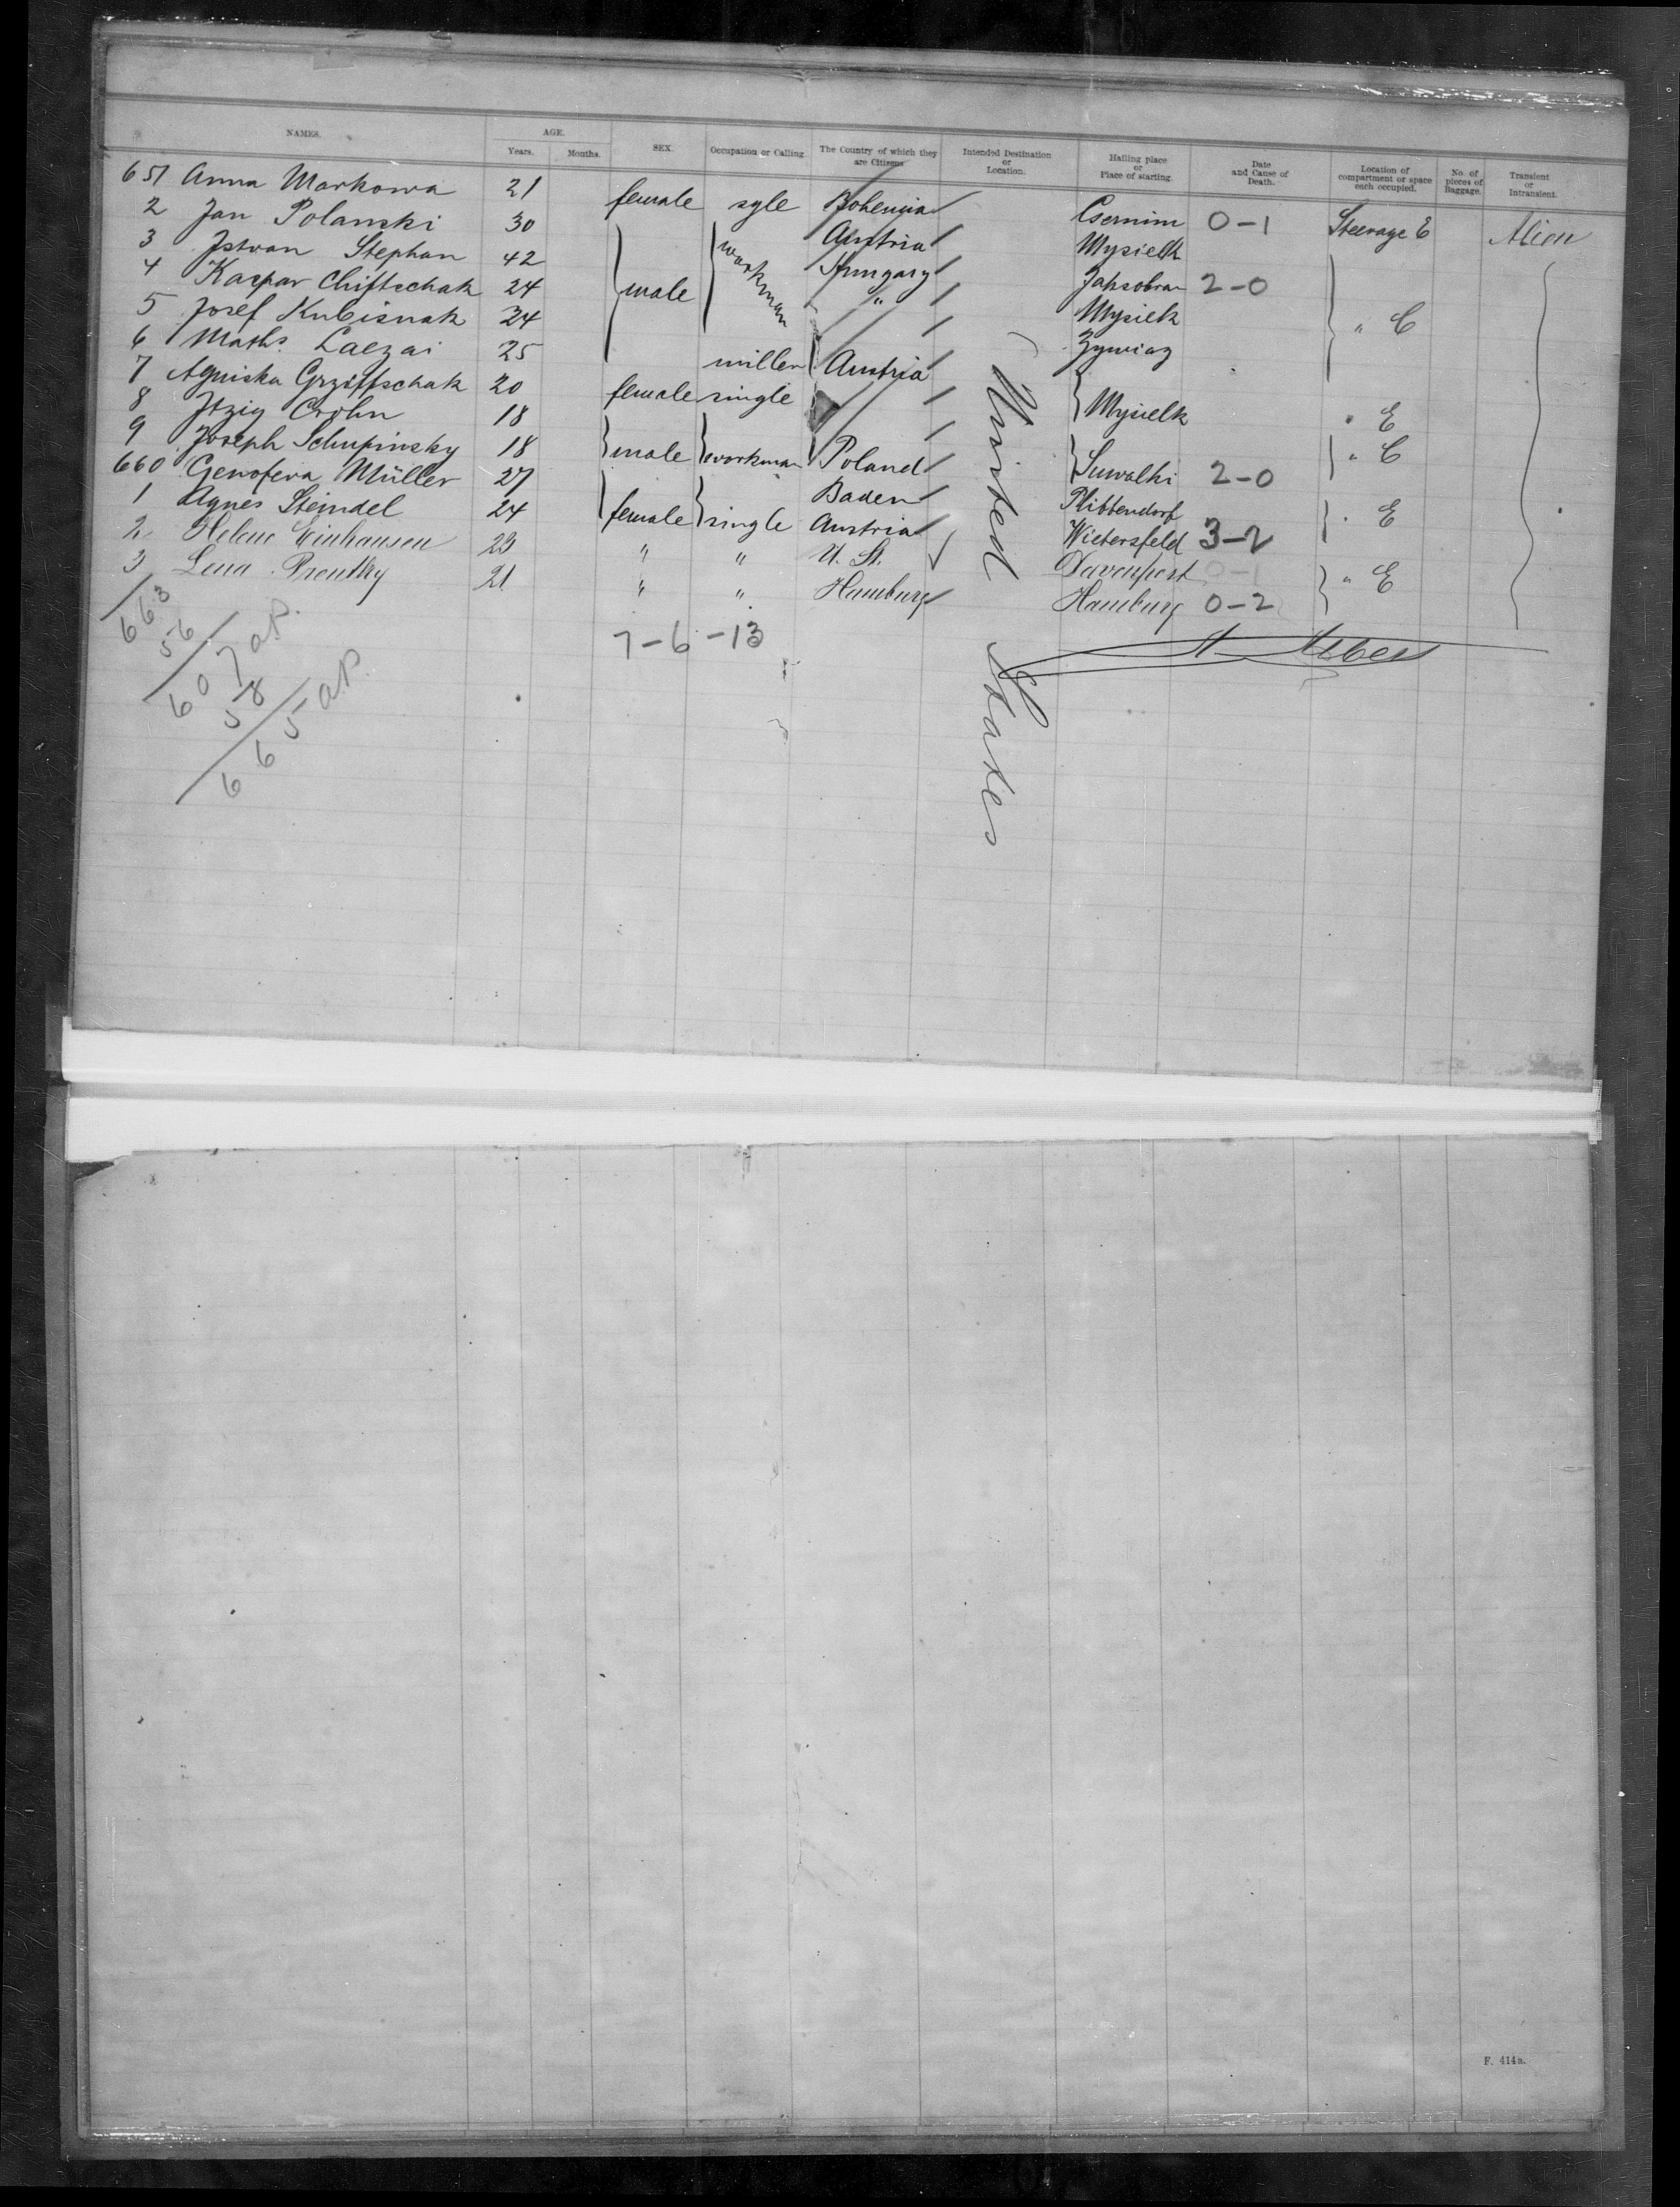 NAMES. AGE. SEX. Occupation or Calling. The Country of which they are Citizens Intended Destination or Location. Hailing place or Place of starting. Date and Cause of Death. Location of compartment or space each occupied. No. of pieces of Baggage. Transient or Intransient.
Years. Months.
651 Anna Markowa 21 female sgle Bohemia Csernim 0-1 Steerage E Alien
2 Jan Polanski 30 Austria Mysielk
3 Istvan Stephan 42 workman Hungary Jahsobran 2-0
4 Kaspar Chiftschak 24 male " Mysielk " C
5 Josef Kubisnak 34 Zywiaz
6 Maths. Laczai 25 miller Austria
7 Agniska Grzöffschak 20 female single Mysielk " E
8 Itzig Crohn 18
9 Joseph Schupinsky 18 male workman Poland Suwalki 2-0 " C
660 Genofeva Müller 27 Baden Plittendorf
1 Agnes Steindel 24 female single Austria Wietersfeld 3-2 " E
2 Helene Einhausen 23 " " U. St. Davenport 0-1
3 Lena Prouthy 21 " " Hamburg Hamburg 0-2 " E
United States
7-6-13
663
56
607 a.P.
58
665 a.P.
F. 414a.